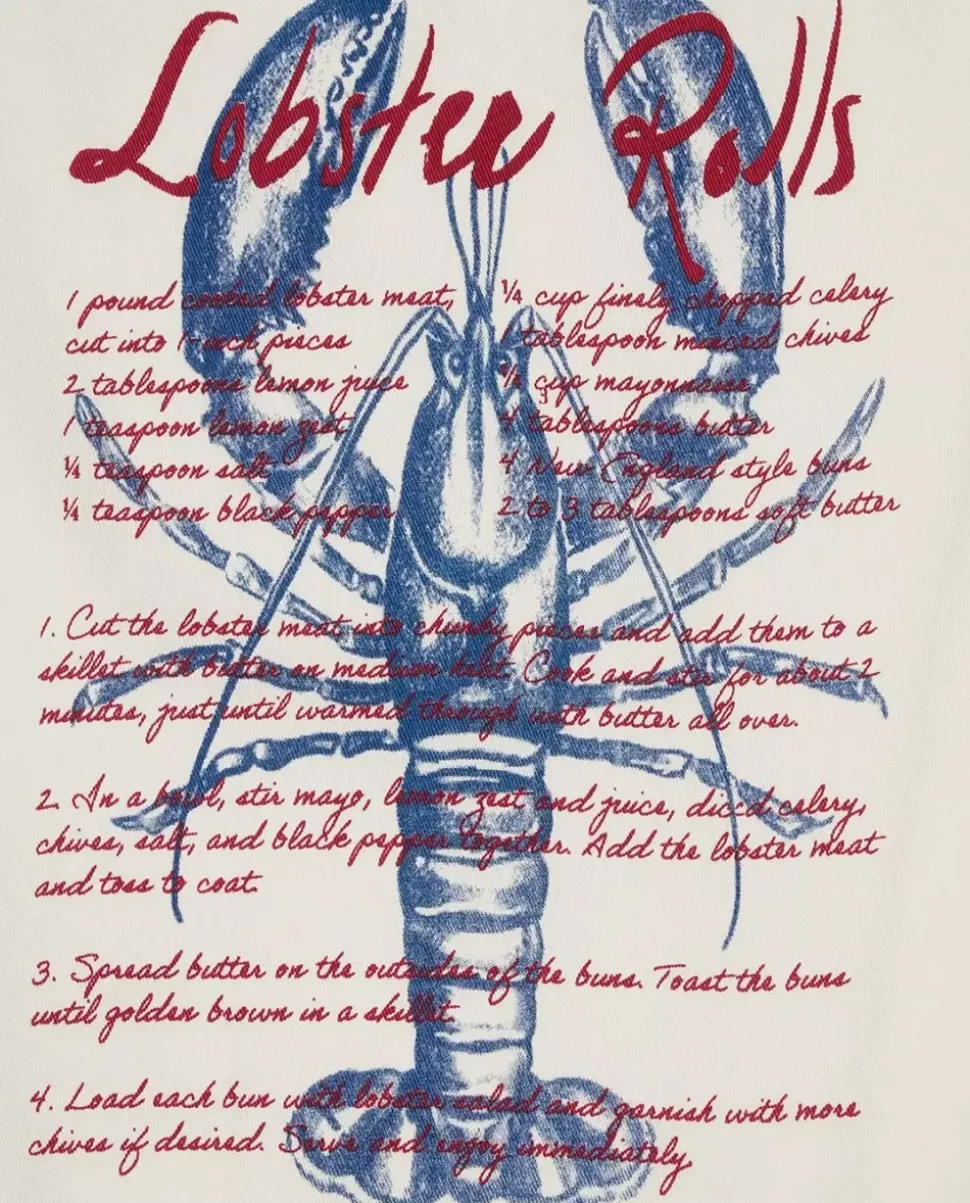 Lobster Rolls
1 pound cooked lobster meat,
cut into 1-inch pieces
2 tablespoons lemon juice
1 teaspoon lemon zest
¼ teaspoon salt
¼ teaspoon black pepper
¼ cup finely chopped celery
1 tablespoon minced chives
cup mayonnaise
4 tablespoons butter
4 New England style buns
2 to 3 tablespoons soft butter
1. Cut the lobster meat into chunky pieces and add them to a
skillet with butter on medium heat. Cook and stir for about 2
minutes, just until warmed through with butter all over.
2. In a bowl, stir mayo, lemon zest and juice, diced celery,
chives, salt, and black pepper together. Add the lobster meat
and toss to coat.
3. Spread butter on the outsides of the buns. Toast the buns
until golden brown in a skillet.
4. Load each bun with lobster salad and garnish with more
chives if desired. Serve and enjoy immediately.